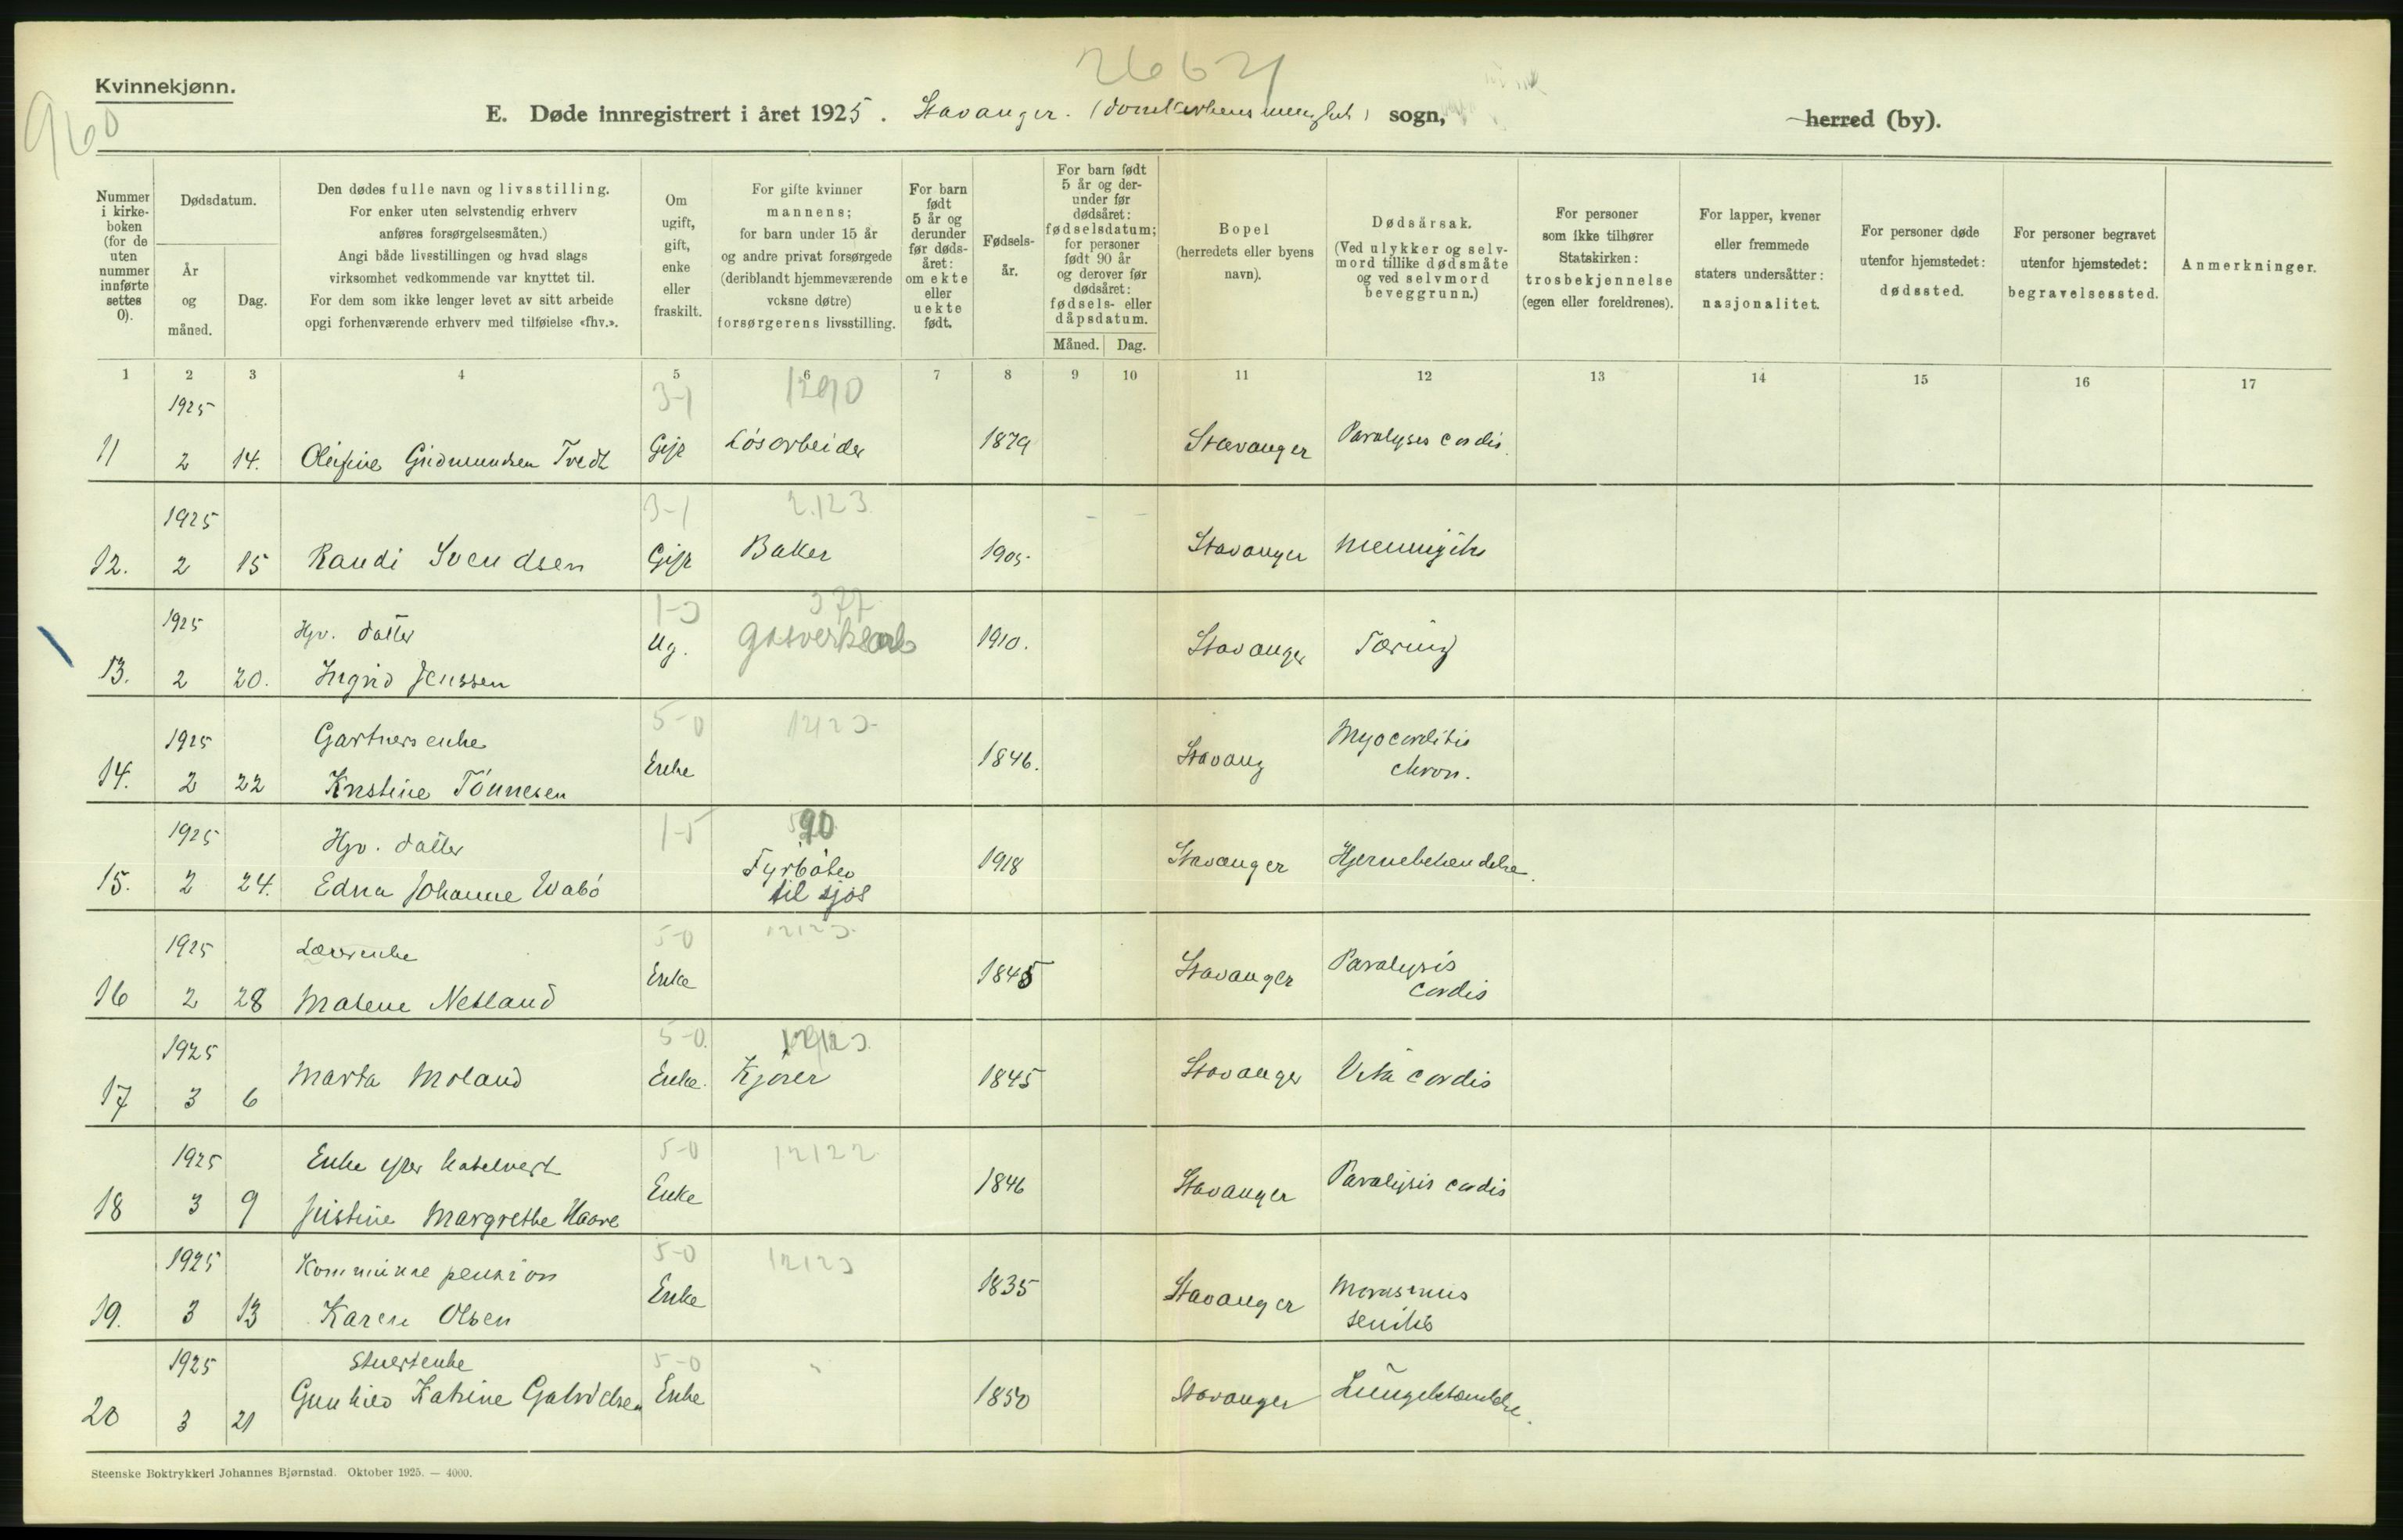 Kvinnekjønn.
2662
960
E. Døde innregistrert i året 1925. Stavanger. (domkirkens menighet) sogn, herred (by).
Nummer i kirkeboken (for de uten nummer innførte settes 0).
Dødsdatum.
År og måned.
Dag.
Den dødes fulle navn og livsstilling.
For enker uten selvstendig erhverv
anføres forsørgelsesmåten.)
Angi både livsstillingen og hvad slags
virksomhet vedkommende var knyttet til.
For dem som ikke lenger levet av sitt arbeide
opgi forhenværende erhverv med tilføielse «fhv.».
Om ugift, gift, enke eller fraskilt.
For gifte kvinner
mannens;
for barn under 15 år
og andre privat forsørgede
(deriblandt hjemmeværende
voksne døtre)
forsørgerens livsstilling.
For barn født 5 år og derunder før dødsåret: om ekte eller uekte født.
Fødselsår.
For barn født 5 år og derunder før dødsåret: fødselsdatum; for personer født 90 år og derover før dødsåret: fødsels- eller dåpsdatum.
Måned. Dag.
Bopel
(herredets eller byens
navn).
Dødsårsak.
(Ved ulykker og selvmord tillike dødsmåte og ved selvmord beveggrunn.)
For personer
som ikke tilhører
Statskirken:
trosbekjennelse
(egen eller foreldrenes).
For lapper, kvener
eller fremmede
staters undersåtter:
nasjonalitet.
For personer døde
utenfor hjemstedet:
dødssted.
For personer begravet
utenfor hjemstedet:
begravelsessted.
Anmerkninger.
1 2 3 4 5 6 7 8 9 10 11 12 13 14 15 16 17
1925 3-1 1290
11 2 14. Olefine Gudmundsen Tvedt Gift Løsarbeider 1879 Stavanger Paralyses cordis.
1925 3-1 2.123
12. 2 15 Randi Svendsen Gift Baker 1905. Stavanger Meningitis
1925 Hjv. datter 1-0 377
13. 2 20. Ingrid Jenssen Ug. Gasverksarb 1910. Stavanger Tæring
1925 Gartnersenke 5-0 12123
14. 2 22 Kristine Tönnesen Enke 1846. Stavang Myocarditis
chron.
1925 Hjv. datter 1-5 90
15. 2 24. Edna Johanne Wabö Fyrböter
til sjøs 1918 Stavanger Hjernebetendelse.
1925 5-0 12123
16 2 28 Malene Netland Enke 1845 Stavanger Paralysis
cordis
1925 5-0. 12123
17 3 6 Marta Moland Enke. Kjører 1845 Stavanger Vitii cordis
1925 Enke efter 5-0 12122
18 3 9 Justine Margrethe Haave Enke 1846 Stavanger Paralysis cordis
1925 Kommunne pension 5-0 12123
19. 3 13 Karen Olsen Enke 1835 Stavanger Marasmus
senilis
1925 Stuertenke 5-0 "
20 3 21 Gunhild Katrine Gabrielsen Enke 1850 Stavanger Lungebetændelse.
Steenske Boktrykkeri Johannes Bjørnstad. Oktober 1925. — 4000.